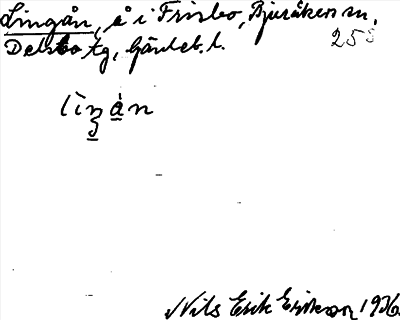 Lingån, å i Frisbo, Bjuråkers sn,
Delsbo tg, Gävleb. l.
258
lìŋàn
Nils Erik Erikson 1936